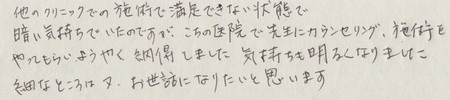 他のクリニックでの施術で満足できない状態で
暗い気持ちでいたのですが、こちの医院で先生にカウンセリング、施術を
やってもらいようやく納得しました 気持ちも明るくなりました
細なところは又、お世話になりたいと思います